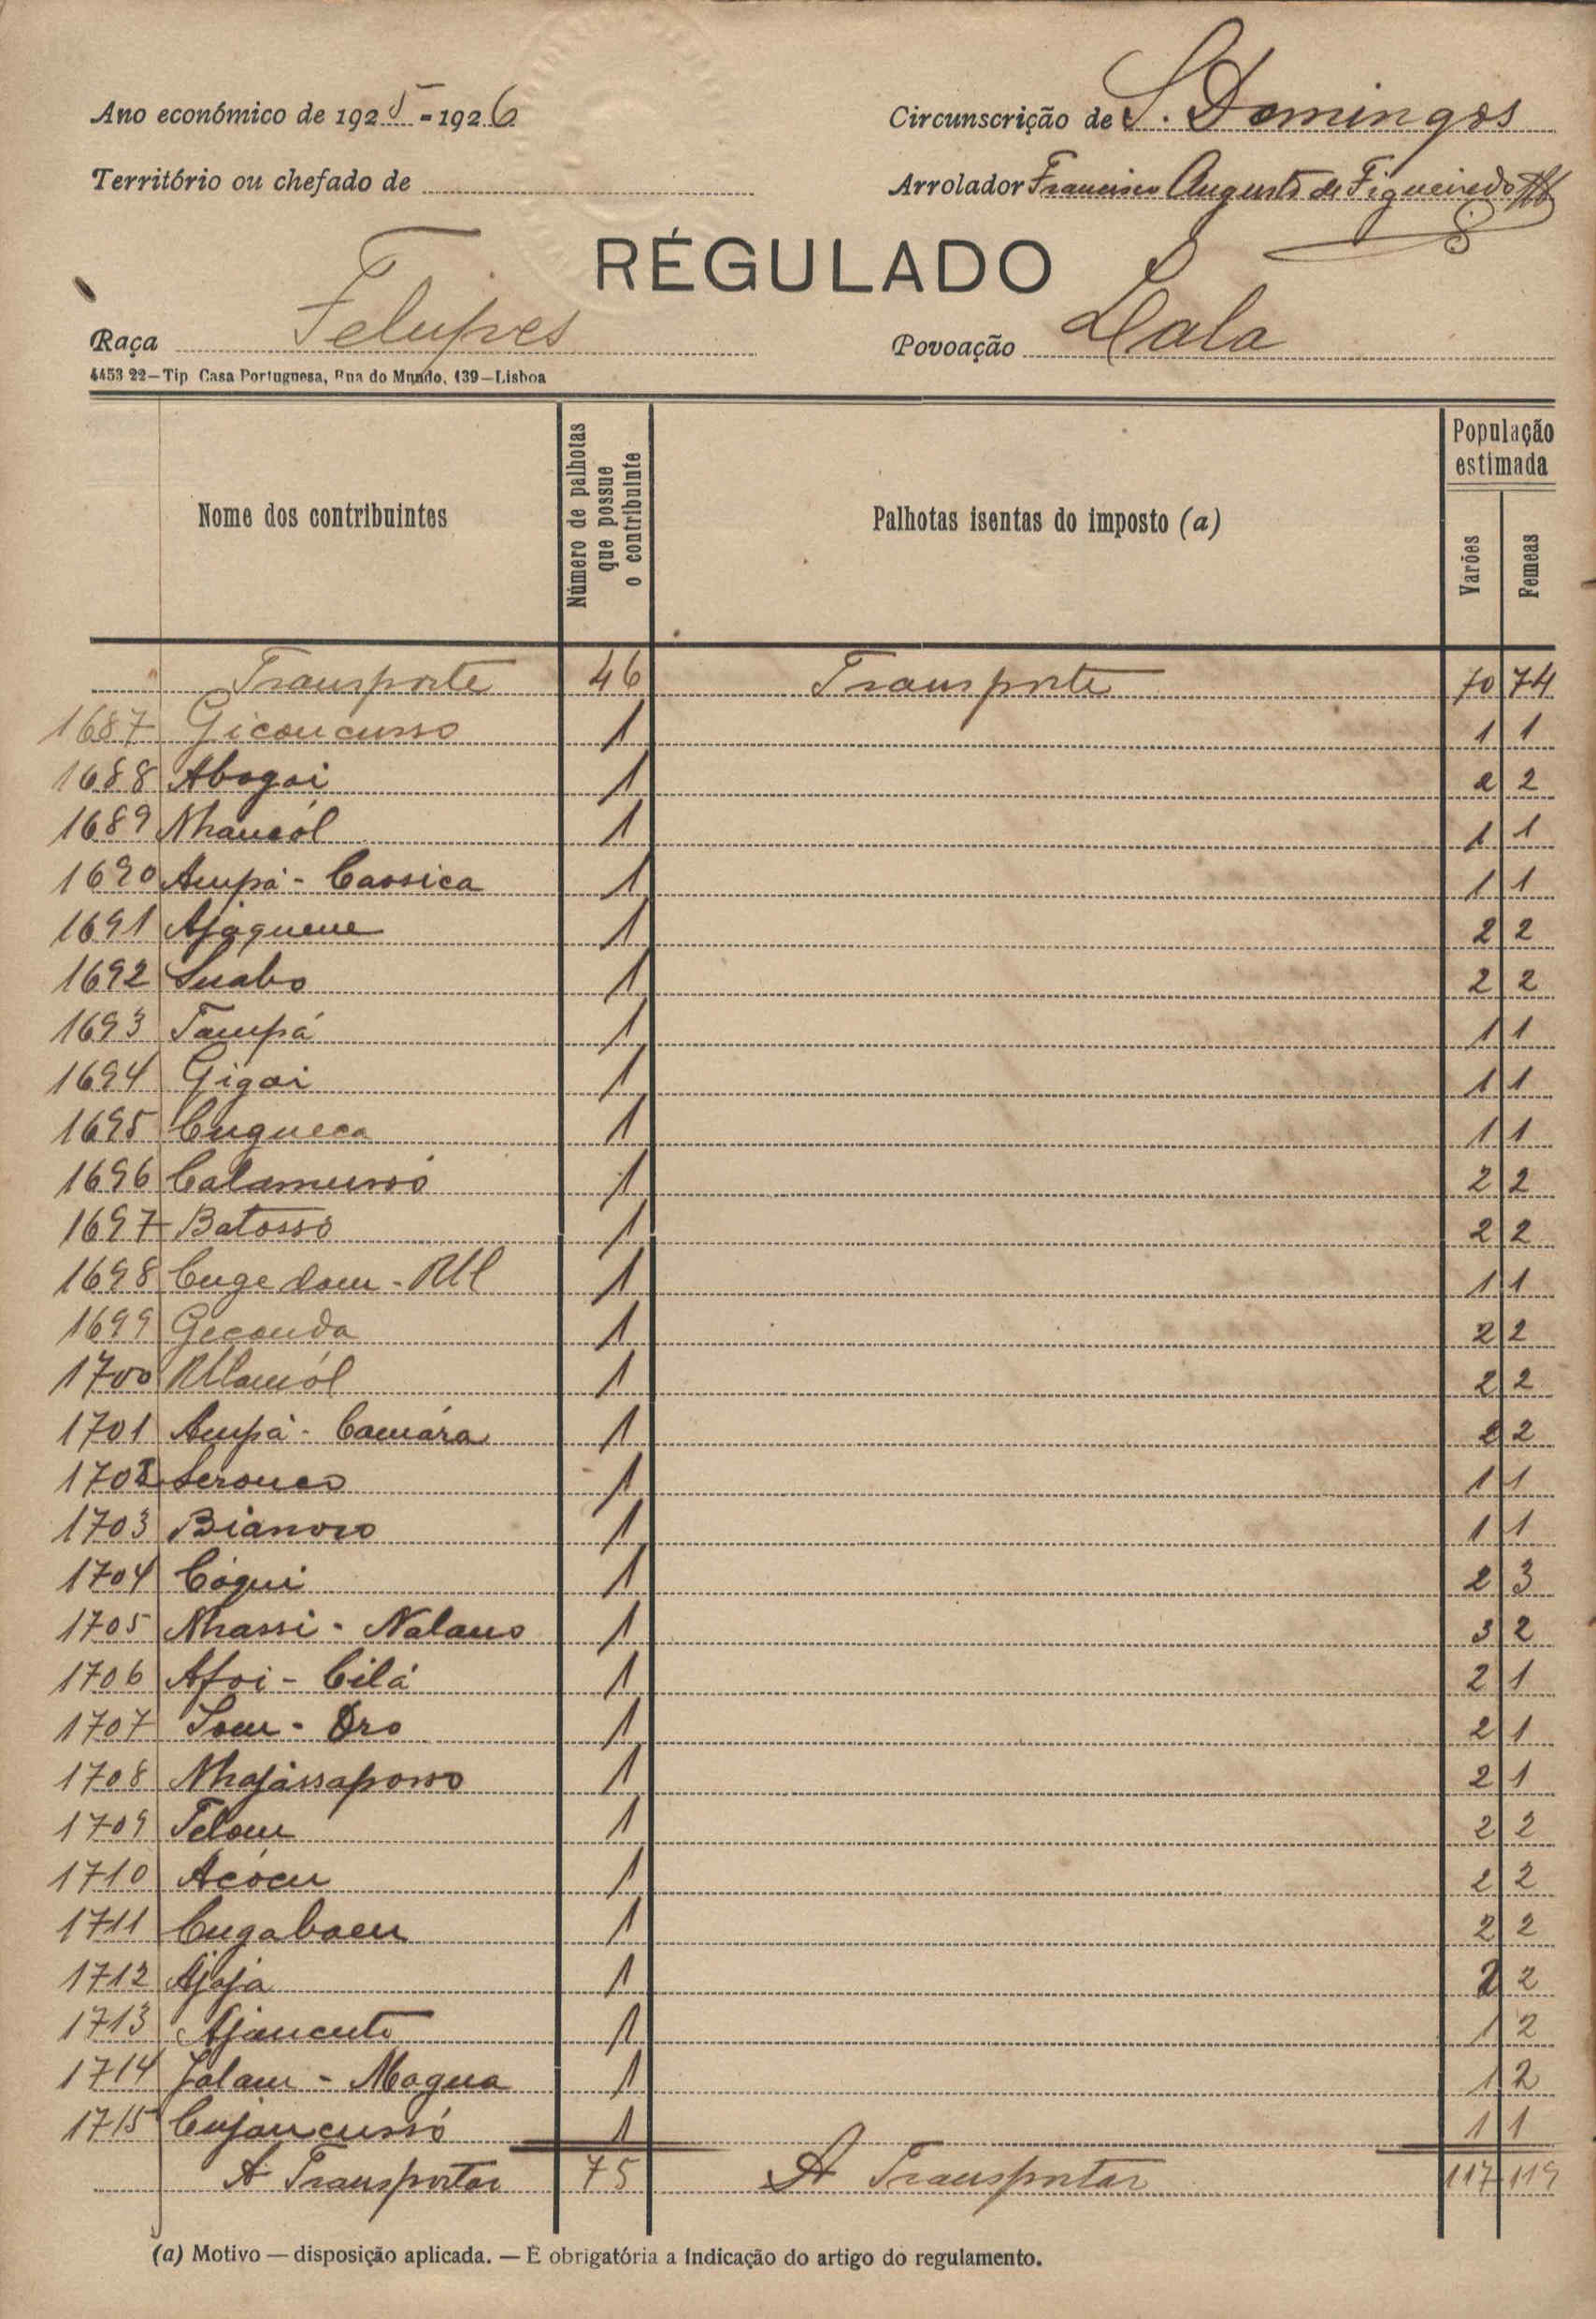 Ano económico de 1925-1926
Circunscrição de S. Domingos
Território ou chefado de
Arrolador Francisco Augusto de Figueiredo
RÉGULADO
Raça Felupes
Povoação Lala
4453 22—Tip Casa Portuguesa, Rua do Mundo, 139—Lisboa
Nome dos contribuintes
Número de palhotas que possue o contribuinte
Palhotas isentas do imposto (a)
População estimada
Varões
Femeas
Transporte 46 Transporte 70 74
1687 Giconcusso 1 1 1
1688 Abogai 1 2 2
1689 Nhancól 1 1 1
1690 Ampá - Cassica 1 1 1
1691 Ajaquene 1 2 2
1692 Suabo 1 2 2
1693 Tampá 1 1 1
1694 Gigai 1 1 1
1695 Cugueca 1 1 1
1696 Calamussó 1 2 2
1697 Batosso 1 2 2
1698 Cuge dam - 1 1 1
1699 Geconda 1 2 2
1700 1 2 2
1701 Ampá - Camára 1 2 2
1702 1 1 1
1703 Bianoso 1 1 1
1704 Cóqui 1 2 3
1705 Nhassi - Nalans 1 3 2
1706 Afoi - Cilá 1 2 1
1707 - Oro 1 2 1
1708 Nhajássaposso 1 2 1
1709 Telam 1 2 2
1710 Acócu 1 2 2
1711 Cugabaen 1 2 2
1712 Ajaja 1 2 2
1713 Ajancute 1 1 2
1714 Jalam - Magna 1 1 2
1715 Cujancussó 1 1 1
A Transportar 75 A Transportar 117 119
(a) Motivo — disposição aplicada. — É obrigatória a indicação do artigo do regulamento.